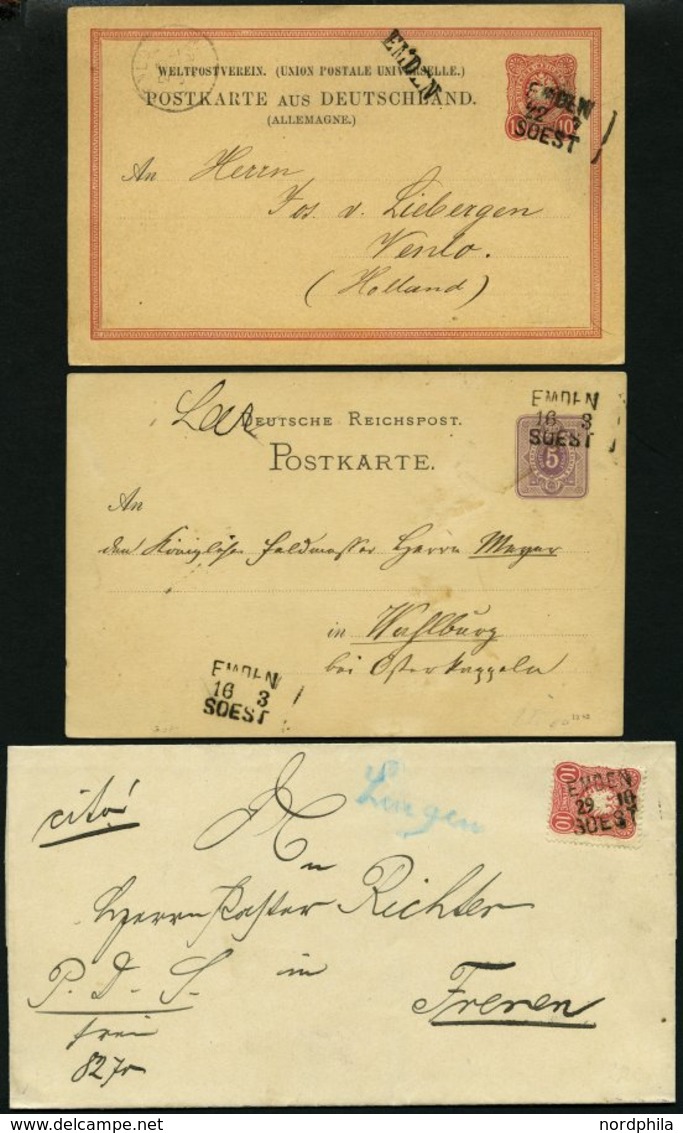 EMDEN
WELTPOSTVEREIN. (UNION POSTALE UNIVERSELLE.)
POSTKARTE AUS DEUTSCHLAND.
(ALLEMAGNE.)
10
EMDEN
22 3
SOEST
An Herrn
Jos. v. Liebergen
Venlo.
(Holland)
EMDEN
16 3
SOEST
DEUTSCHE REICHSPOST.
5
POSTKARTE.
An
den Königlichen Feldmesser Herrn Meyer
in Wahlburg
bei Osterkappeln
EMDEN
16 3
SOEST
cito!
Lingen
10 10
EMDEN
29 10
SOEST
Herrn Pastor Richter
P. D. S. in Freren
frei
827
© nordphila